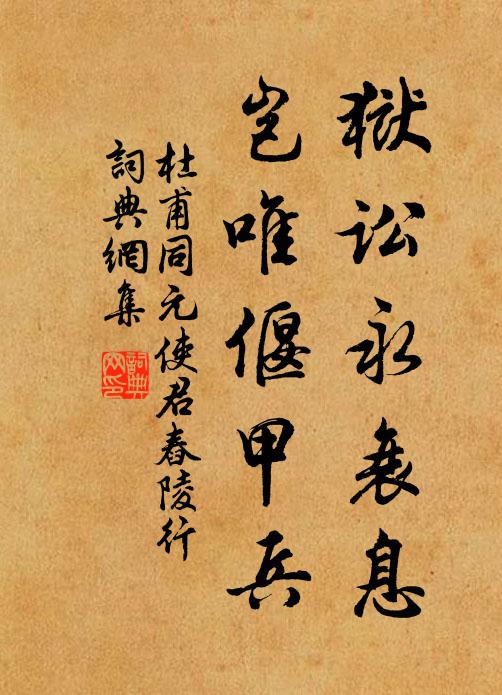 獄訟永衰息
豈唯偃甲兵
杜甫同元使君舂陵行
詞典網集
詞典网印